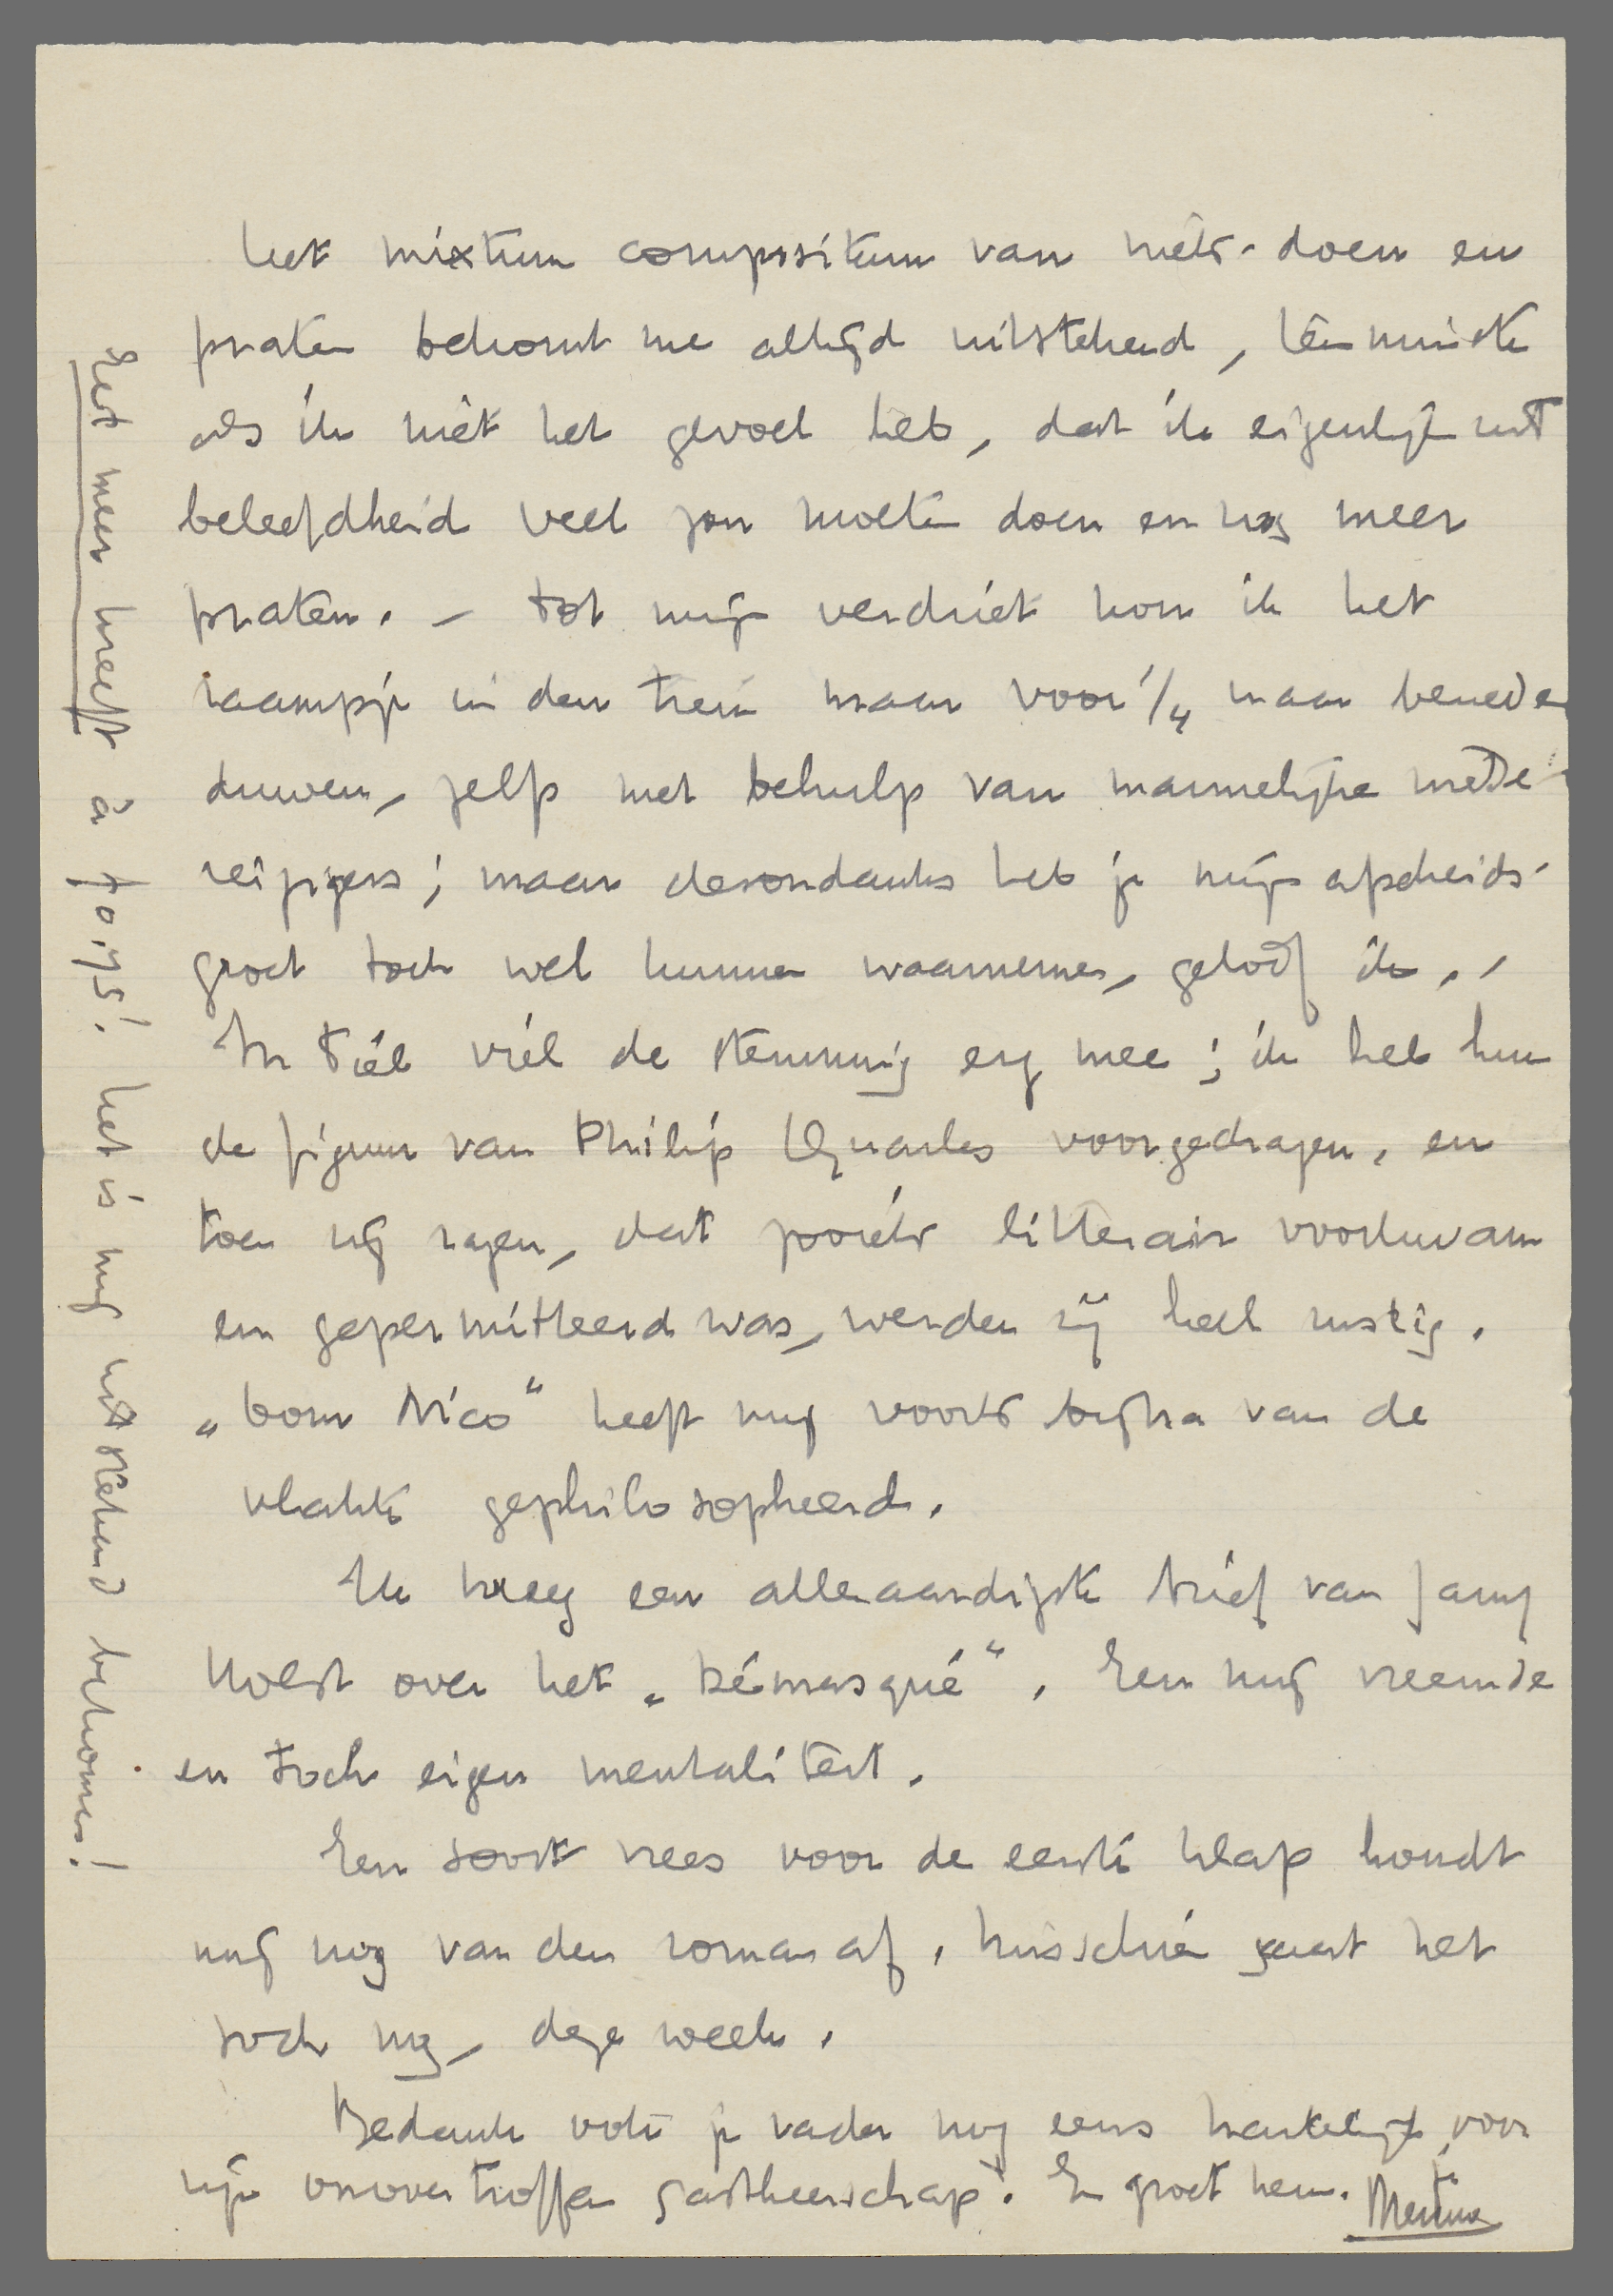 het mixtum compositum van niets-doen en
praten bekomt me altijd uitstekend, tenminste
als ik niet het gevoel heb, dat ik eigenlijk uit
beleefdheid veel zou moeten doen en nog meer
praten. – Tot mijn verdriet kon ik het
raampje in den trein maar voor 1/4 naar beneden
duwen, zelfs met behulp van mannelijke mede-
reizigers; maar desondanks heb je mijn afscheids-
groet toch wel kunnen waarnemen, geloof ik. –
In Tiel viel de stemming erg mee; ik heb hun
de figuur van Philip Quarles voorgedragen, en
toen zij zagen, dat zooiets litterair voorkwam
en gepermitteerd was, werden zij heel rustig.
„oom Nico" heeft mij voorts bijna van de
vlakte gephilosopheerd.
Ik kreeg een alleraardigste brief van Jany
Holst over het „Démasqué". Een mij vreemde
en toch eigen mentaliteit.
Een soort vrees voor de eerste klap houdt
mij nog van den roman af. Misschien gaat het
toch nog, deze week.
Bedank ook je vader nog eens hartelijk voor
zijn onovertroffen gastheerschap. En groet hem. je
Menno
Het meer kreeft à f 0,75! het is mij uitstekend bekomen!